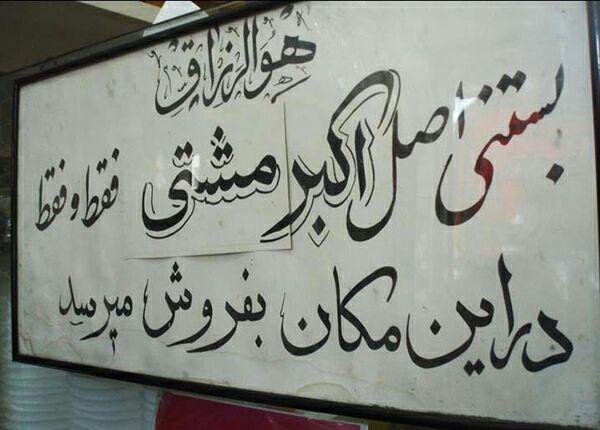 هوالرزاق
بستنی اصل اکبر مشتی فقط و فقط
در این مکان بفروش میرسد